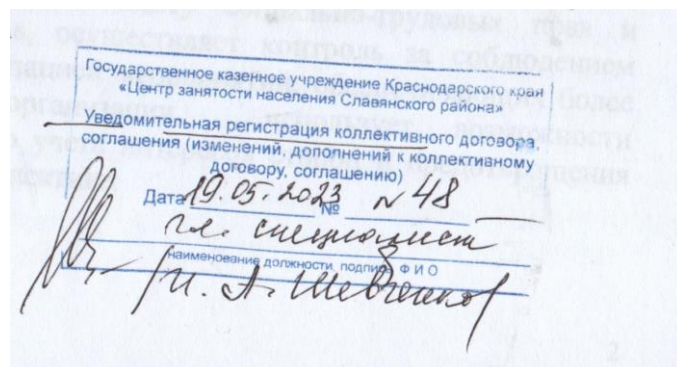 -трудовых прав и
осуществляет контроль за соблюдением
более
возможности
Государственное казенное учреждение Краснодарского края
«Центр занятости населения Славянского района»
Уведомительная регистрация коллективного договора,
соглашения (изменений, дополнений к коллективному
договору, соглашению)
Дата 19.05.2023 № N 48
гл. специалист
наименование должности, подпись Ф И О
Шевченко
2